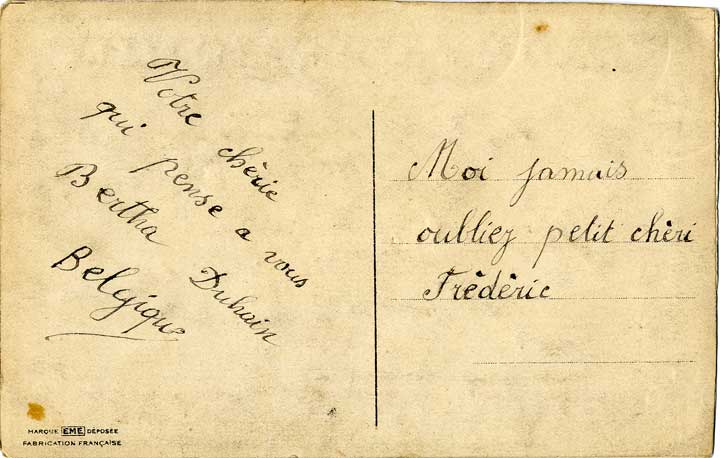 Votre chèrie
qui pense a vous
Bertha Duhain
Belgique
Moi jamais
oubliez petit chèri
Frèdèric
MARQUE EME DÉPOSÉE
FABRICATION FRANÇAISE